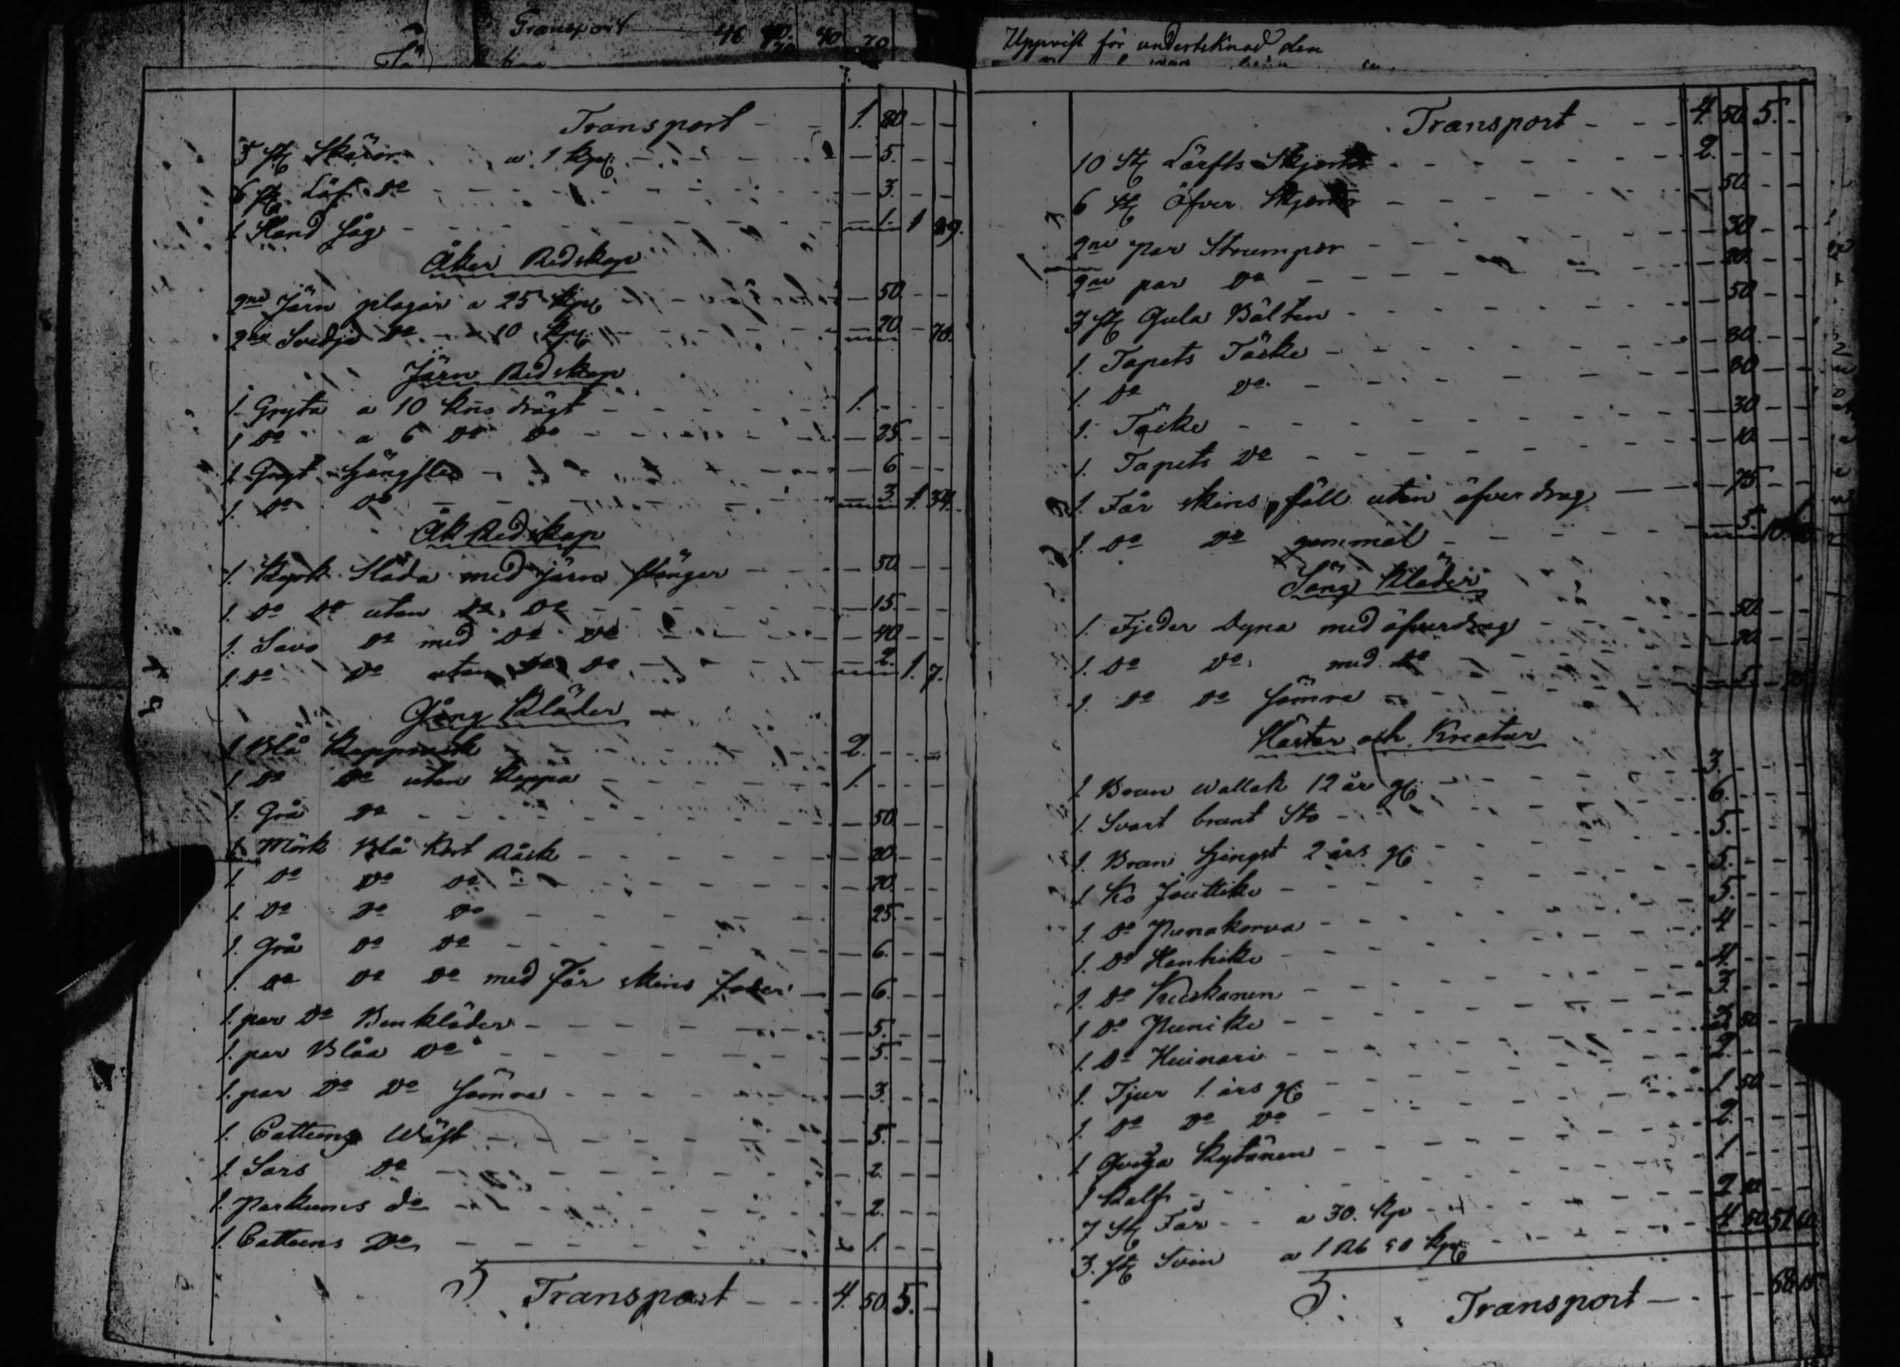 Transport 46 40 70
Transport - - 1. 80 - -
5 st Skäror a 1 kp - 5. - -
6 st Löf Do - 3. - -
1 Hand såg - 1. 1 89.
Åker Redskap
2ne Järn plogar a 25 kp - 50 - -
2ne Svedje Do - 10 kp - 20 - 70.
Järn Redskap
1. Gryta a 10 kors drägt 1. - - -
1 Do a 6 Do Do - 25 - -
1 Gryt - 6 - -
1. Do Do - 3. 1. 34.
Åk Redskap
1. Kyrk Släda med järn stänger - 50 - -
1. Do Do utan Do Do - 15 - -
1. Savo Do med Do Do - 40 - -
1. Do Do utan Do Do - 2. 1. 7.
Gång Kläder
1 Blå Kapprock 2. - - -
1. Do Do utan kappa 1. - - -
1. Grå Do - 50 - -
1. Mörk Blå Kort Råck - 20 - -
1. Do Do Do - 20 - -
1. Do Do Do - 25 - -
1. Grå Do Do - 6. - -
1. Do Do Do med Får skins foder - 6. - -
1. par Do Benkläder - 5. - -
1. par Blåa Do - 5. - -
1. par Do Do Sämre - 3. - -
1. Cattuns Wäst - 5. - -
1. Sars Do - 2. - -
1. Parkums do - 2. - -
1. Cattuns Do - 1. - -
Transport - - 4. 50. 5. -
Uppvist för undertecknad den
Transport - - - 4. 50. 5. -
10 st Lärfts Skjortor 2. - - -
6 st Öfver Skjortor - 50 - -
2ne par Strumpor - 30 - -
2ne par Do - 20 - -
3 st Gula Bälten - 50 - -
1. Tapets Täcke - 80 - -
1. Do Do - 30 - -
1. Täcke - 30 - -
1. Tapets Do - 10 - -
1 Får skins fäll utan öfver drag - 75 - -
1. Do Do gammal - 5.
Säng Kläder
1. Fjeder Dyna med öfverdrag - 50 - -
1. Do Do med Do
1 Do Do Sämre - 5.
Hästar och Kreatur
1 Brun wallak 12 år gl 3. - - -
1. Svart brunt Sto 6. - - -
1. Brun Hingst 2 års gl 5. - - -
1. Ko Jouttike 5. - - -
1. Do Punakorva 5. - - -
1. Do Hanhike 4 - - -
1. Do Kuiskanen 4. - - -
1 Do Punike 3. - - -
1. Do Huinari
1. Tjur 1 års gl 2. - - -
1. Do Do Do 1 50 - -
1 Qviga Kytönen 2. - - -
1 Kalf 1 - - -
7 st Får a 30. kp 2 10 - -
3. st Svin a 1 Rb 50 kp 4. 50
Transport - - - 68 15